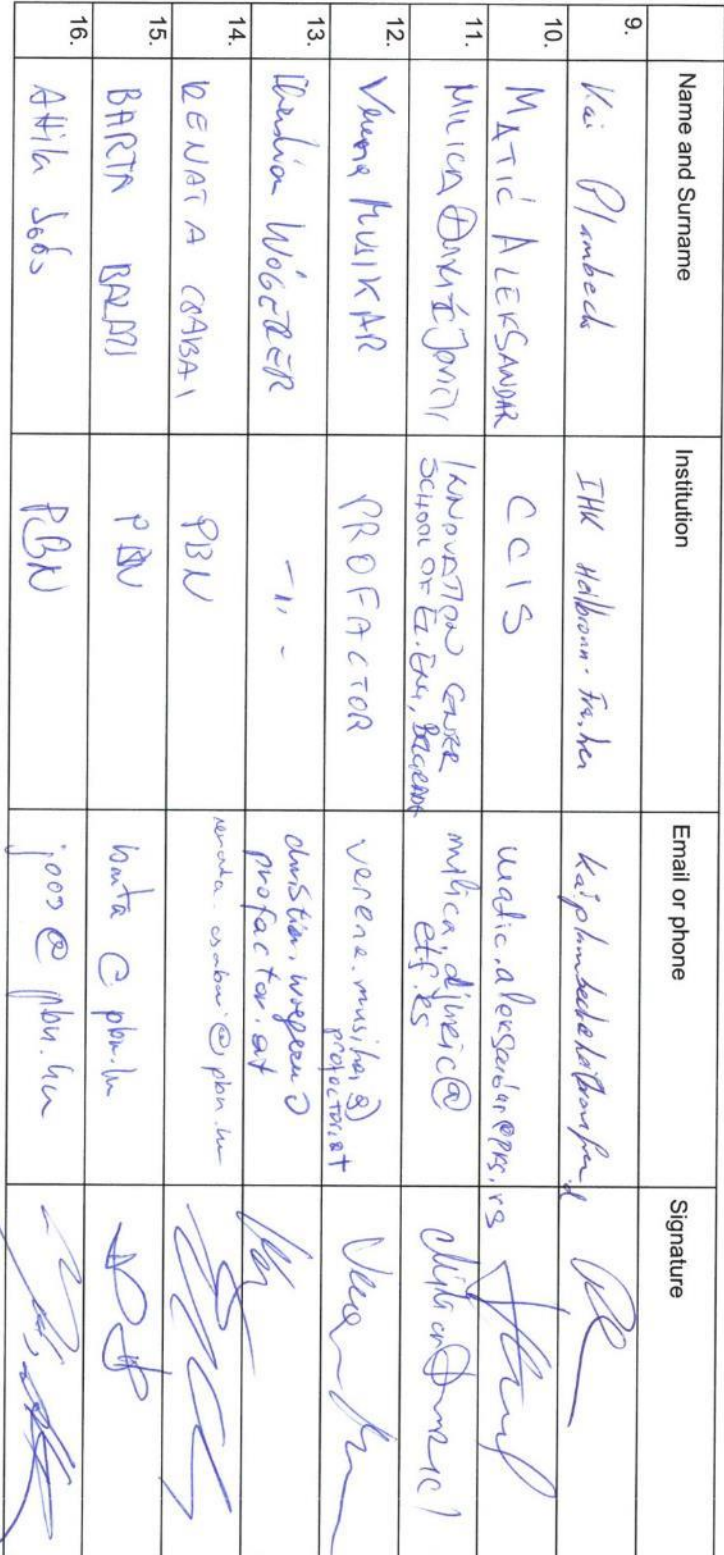 Name and Surname Institution Email or phone Signature
9. Kai Plambeck IHK Heilbronn-
10. MATIĆ ALEKSANDAR CCIS matic.aleksandar@pks.rs
11. MILICA INNOVATION
SCHOOL OF EL. ENG, milica.djuric@
etf.rs
12. Verena MUSIKAR PROFACTOR verena.musikar@
profactor.at
13. WÖGERER -11- christian.woegerer@
profactor.at
14. RENATA CSABAI PBN renata.csabai@pbn.hu
15. BARTA PBN barta@pbn.hu
16. Attila Joós PBN joos@pbn.hu